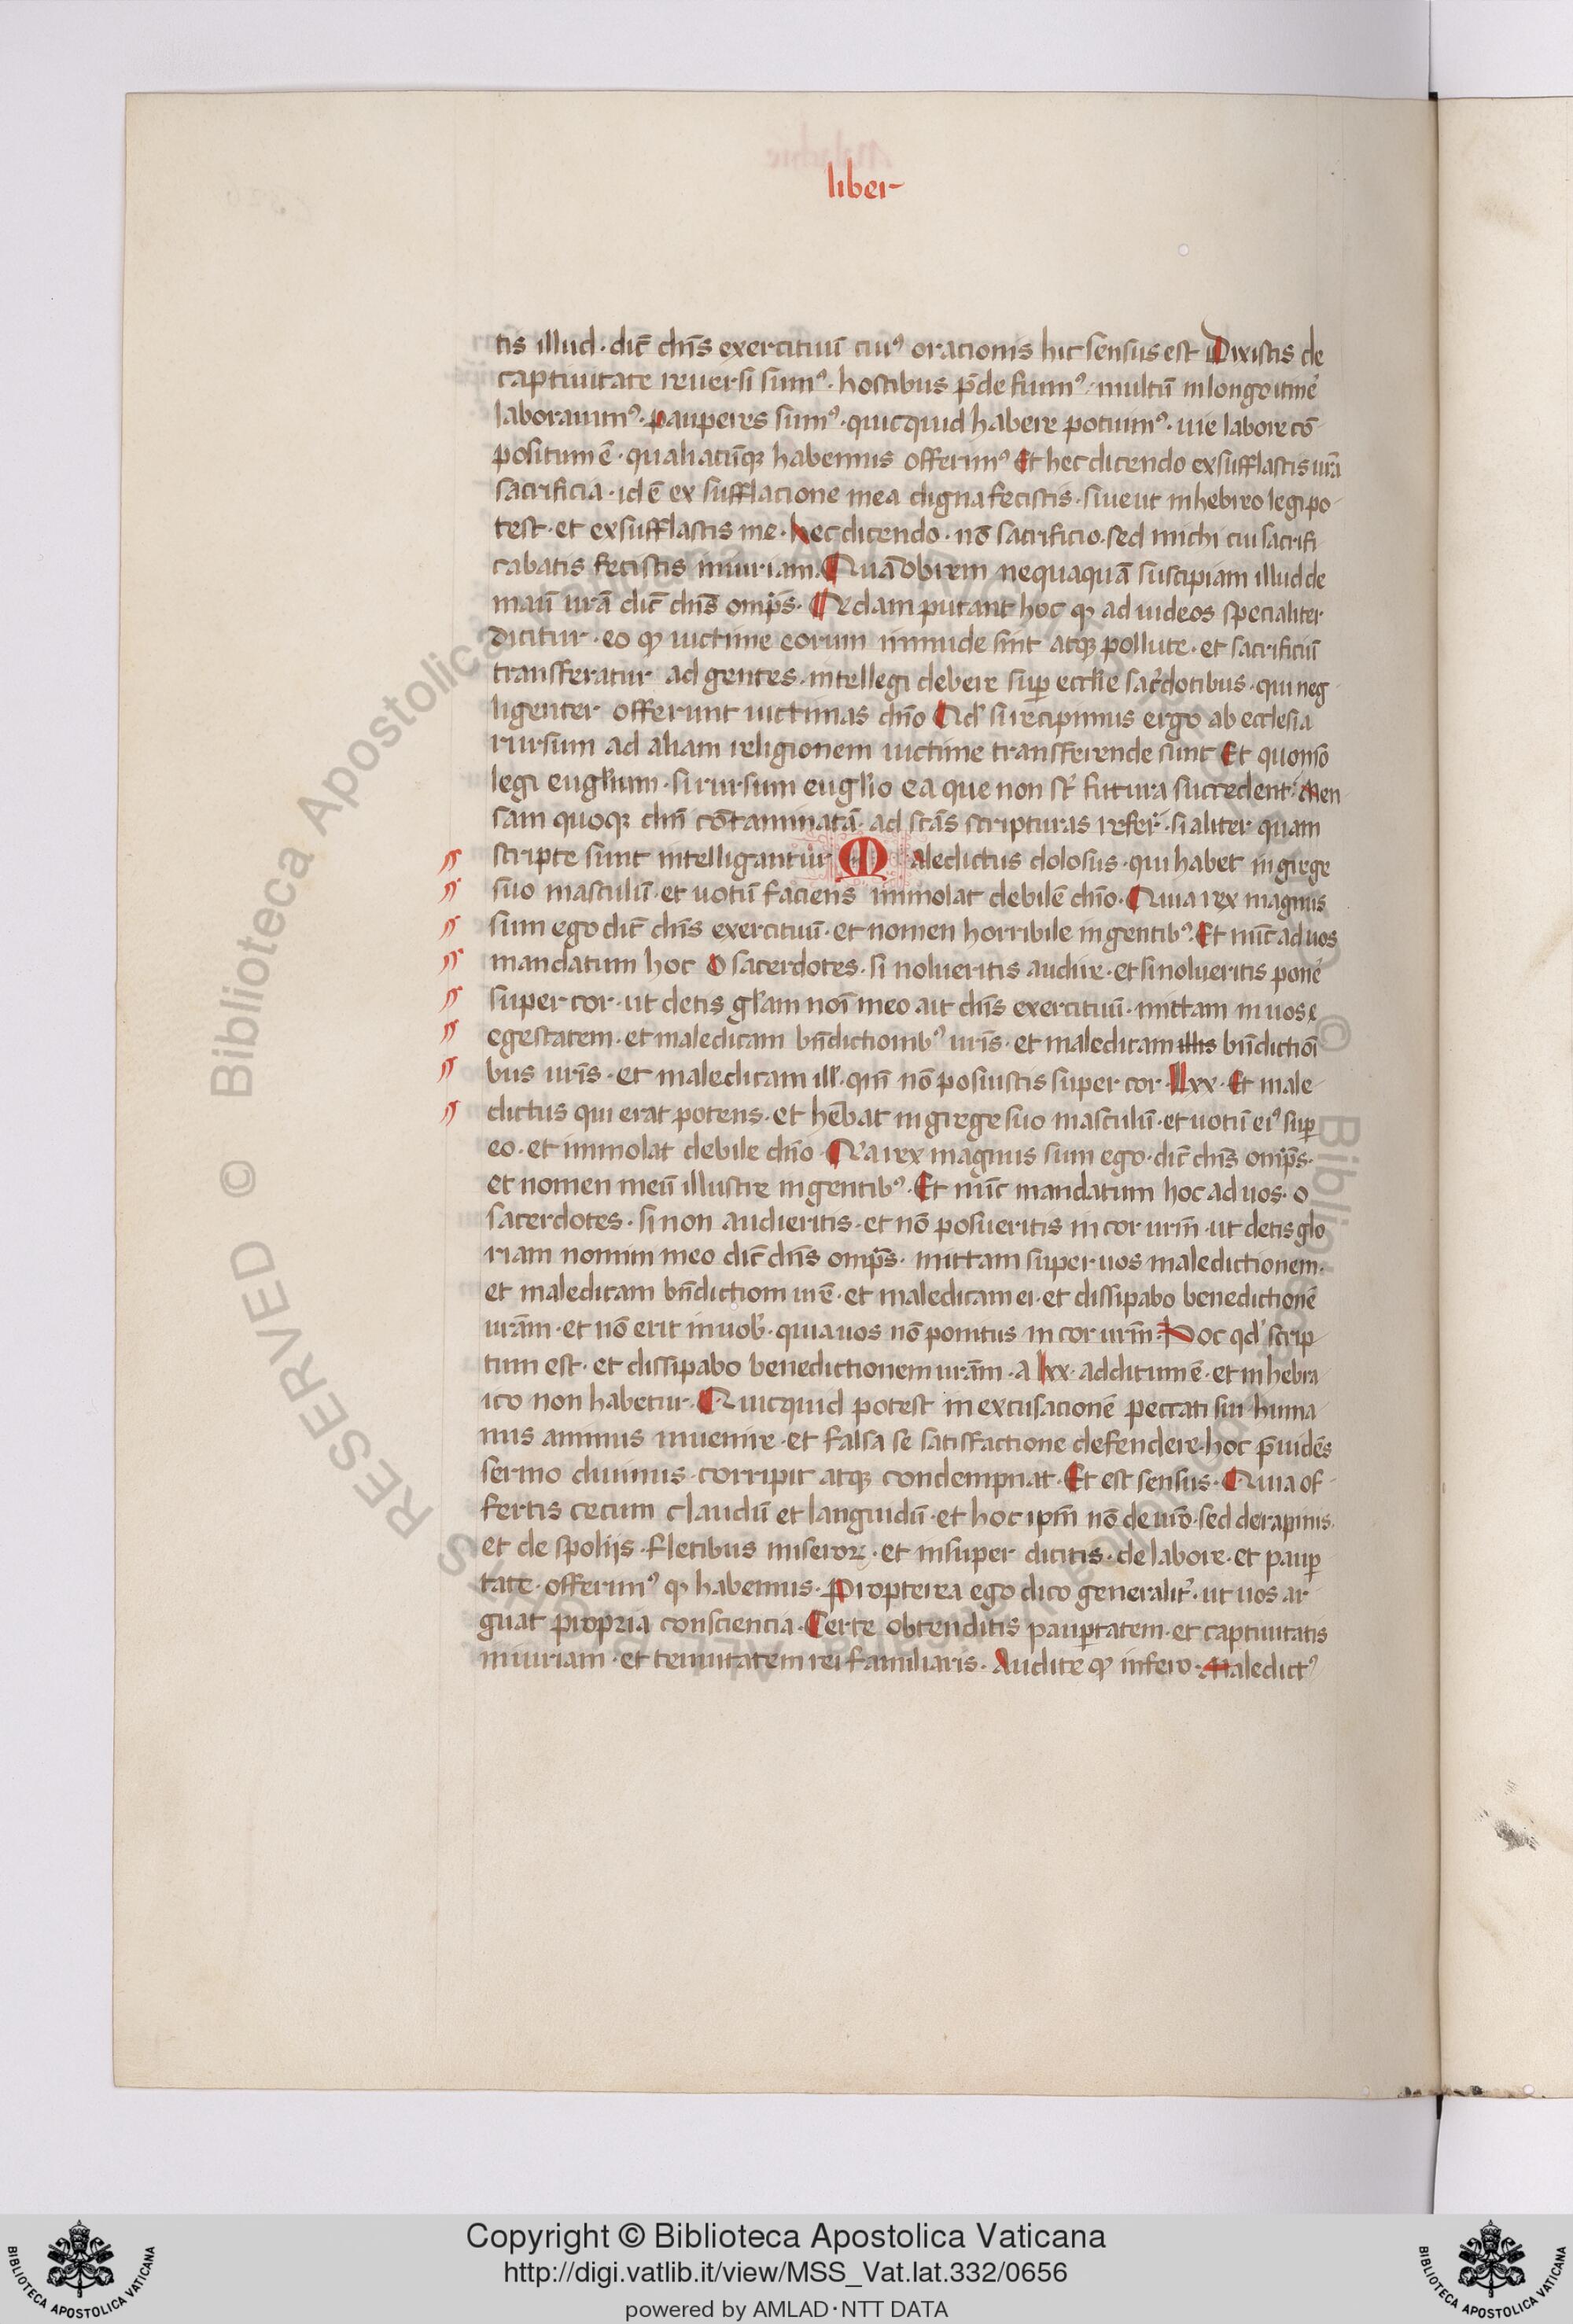 liber
tis illud · dic̄ dn̄s exercituū cuiꝰ orationis hic sensus est Dixistis de
captiuitate reuersi sumꝰ · hostibus p̄de fuimꝰ · multū in longo itine᷒
laborauimꝰ · pauperes sumꝰ · quicquid habere potuimꝰ · uie labore cō
positum ē · qualiacūqꝫ habemus offerimꝰ Et hec dicendo exsufflastis ur̄a
sacrificia · id ē ex sufflacione mea digna fecistis · siue ut in hebreo legi po
test · et exsufflastis me · hec dicendo · nō sacrificio · sed michi cui sacrifi
cabatis fecistis iniuriam. Quā obrem nequaquā suscipiam illud de
manū ur̄a dic̄ dn̄s omp̄s · Quidam putant hoc ꝙ ad iudeos specialiter
dicitur · eo ꝙ uictime eorum inmūde sint atqꝫ pollute · et sacrificiū
transferatur ad gentes · intellegi debere suꝑ eccl̄ie sac̄dotibus · qui neg
ligenter offerunt uictimas dn̄o Qd' si recipimus ergo ab ecclesia
rursum ad aliam religionem uictime transferende sunt Et quomō
legi eugl̄ium · si rursum eugl̄io ea que non st̄ futura succedent · Men
sam quoqꝫ dn̄i cōtaminatā · ad sc̄as scripturas refer · si aliter quam
scripte sunt intelligantur Maledictus dolosus · qui habet in grege
suo masculū · et uotū faciens immolat debilē dn̄o · Quia rex magnus
sum ego dic̄ dn̄s exercituū · et nomen horribile in gentibꝰ · Et nūc ad uos
mandatum hoc O sacerdotes · si nolueritis audire · et si nolueritis pone᷒
super cor · ut detis gl̄am noı̄ meo ait dn̄s exercituū · mittam in uos e
egestatem · et maledicam bn̄dictionibꝰ ur̄is · et maledicam illis bn̄dictioı̄
bus ur̄is · et maledicam ill' · qm̄ nō posuistis super cor · Lxx · Et male
dictus qui erat potens · et hēbat in grege suo masculū · et uotū eiꝰ suꝑ
eo · et immolat debile dn̄o · Q'a rex magnus sum ego · dic̄ dn̄s omp̄s ·
et nomen meū illustre in gentibꝰ · Et nūc mandatum hoc ad uos · o
sacerdotes · si non audieritis · et nō posueritis in cor urm̄ · ut detis glo
riam nomini meo dic̄ dn̄s omp̄s · mittam super uos maledictionem ·
et maledicam bn̄dictioni ur̄e · et maledicam ei · et dissipabo benedictionē
ur̄am · et nō erit in uob' · quia uos nō ponitus in cor urm̄ · Hoc qd' scrip
tum est · et dissipabo benedictionem ur̄am · a lxx · additum ē · et in hebra
ico non habetur · Quicquid potest in excusacionē peccati sui huma
nus animus inuenire · et falsa se satisfactione defendere · hoc p̄uidēs
sermo diuinus · corripit atqꝫ condempnat · Et est sensus · Quia of
fertis cecum claudū et languidū · et hoc ipm̄ nō de ur̄o · sed de rapinis ·
et de spolijs · fletibus miseroꝝ · et insuper dicitis · de labore · et pauꝑ
tate · offerimꝰ ꝙ habemus · Propterea ego dico generalit᷒ · ut uos ar
guat propria consciencia · Certe obtenditis pauꝑtatem · et captiuitatis
iniuriam · et tenuitatem rei familiaris · Audite ꝙ infero · Maledictꝰ
RESERVED © Biblioteca Apostolica Vaticana
Copyright © Biblioteca Apostolica Vaticana
http://digi.vatlib.it/view/MSS_Vat.lat.332/0656
powered by AMLAD·NTT DATA
BIBLIOTECA APOSTOLICA VATICANA
BIBLIOTECA APOSTOLICA VATICANA